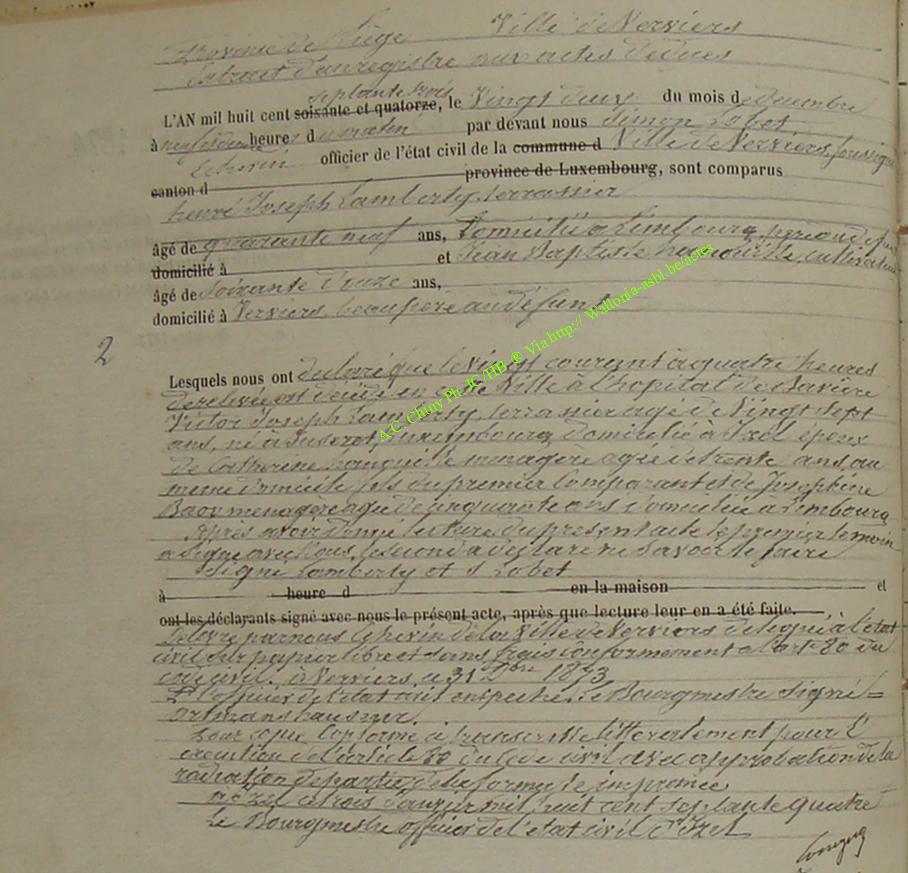 Province de Liège Ville de Verviers
Extrait d'un registre aux actes de décès
septante trois
L'AN mil huit cent soixante et quatorze, le Vingt deux du mois de décembre
à neuf heure d du matin par devant nous Simon Lobet
Echevin officier de l'état civil de la commune d Ville de Verviers, soussigné
canton d province de Luxembourg, sont comparus
henri Joseph Lamberty, terrassier
âgé de quarante neuf ans, Domicilié à Limbourg, père du défunt
domicilié à et Jean Baptiste cultivateur
âgé de Soixante douze ans,
domicilié à Verviers, beau père au défunt
2
Lesquels nous ont déclaré que le Vingt courant à quatre heures
de relevée est décédé en cette Ville à l'hopital de Bavière
Victor Joseph Lamberty, terrassier agé de Vingt Sept
ans, né à Luxembourg domicilié à Izel époux
de Catherine ménagère agée de trente ans, au
meme domicile fils du premier comparant et de Joséphine
ménagère agée de cinquante ans domiciliée à Limbourg
Après avoir donné lecture du présent acte le premier témoin
a signé avec Nous, le second a déclaré ne savoir le faire
Signé Lamberty et S Lobet
à heure d en la maison et
ont les déclarants signé avec nous le présent acte, après que lecture leur en a été faite.
Délivré par nous Echevin de la Ville de Verviers délégué à l'état
civil sur papier libre et sans frais conformément à l'art 80 du
code civil. à Verviers, le 31 Xbre 1873
L'officier de l'état civil empeché, le Bourgmestre signé =
Ortmans hauzeur.
Pour copie conforme à transcrite littéralement pour l'
exécution de l'article 80 du Code civil avec approbation de la
radiation de partie de la formule imprimée
à Izel le trois Janvier mil huit cent septante quatre
Le Bourgmestre officier de l'état civil d'Izel
A.C. Chiny Ph. JC /HB ® Via http:// Wallonia-asbl.be/actes